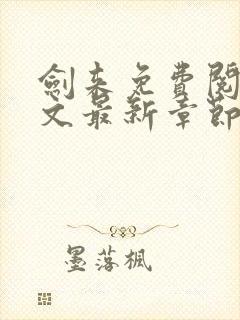 劍来免費閱
文最新章節
墨落楓